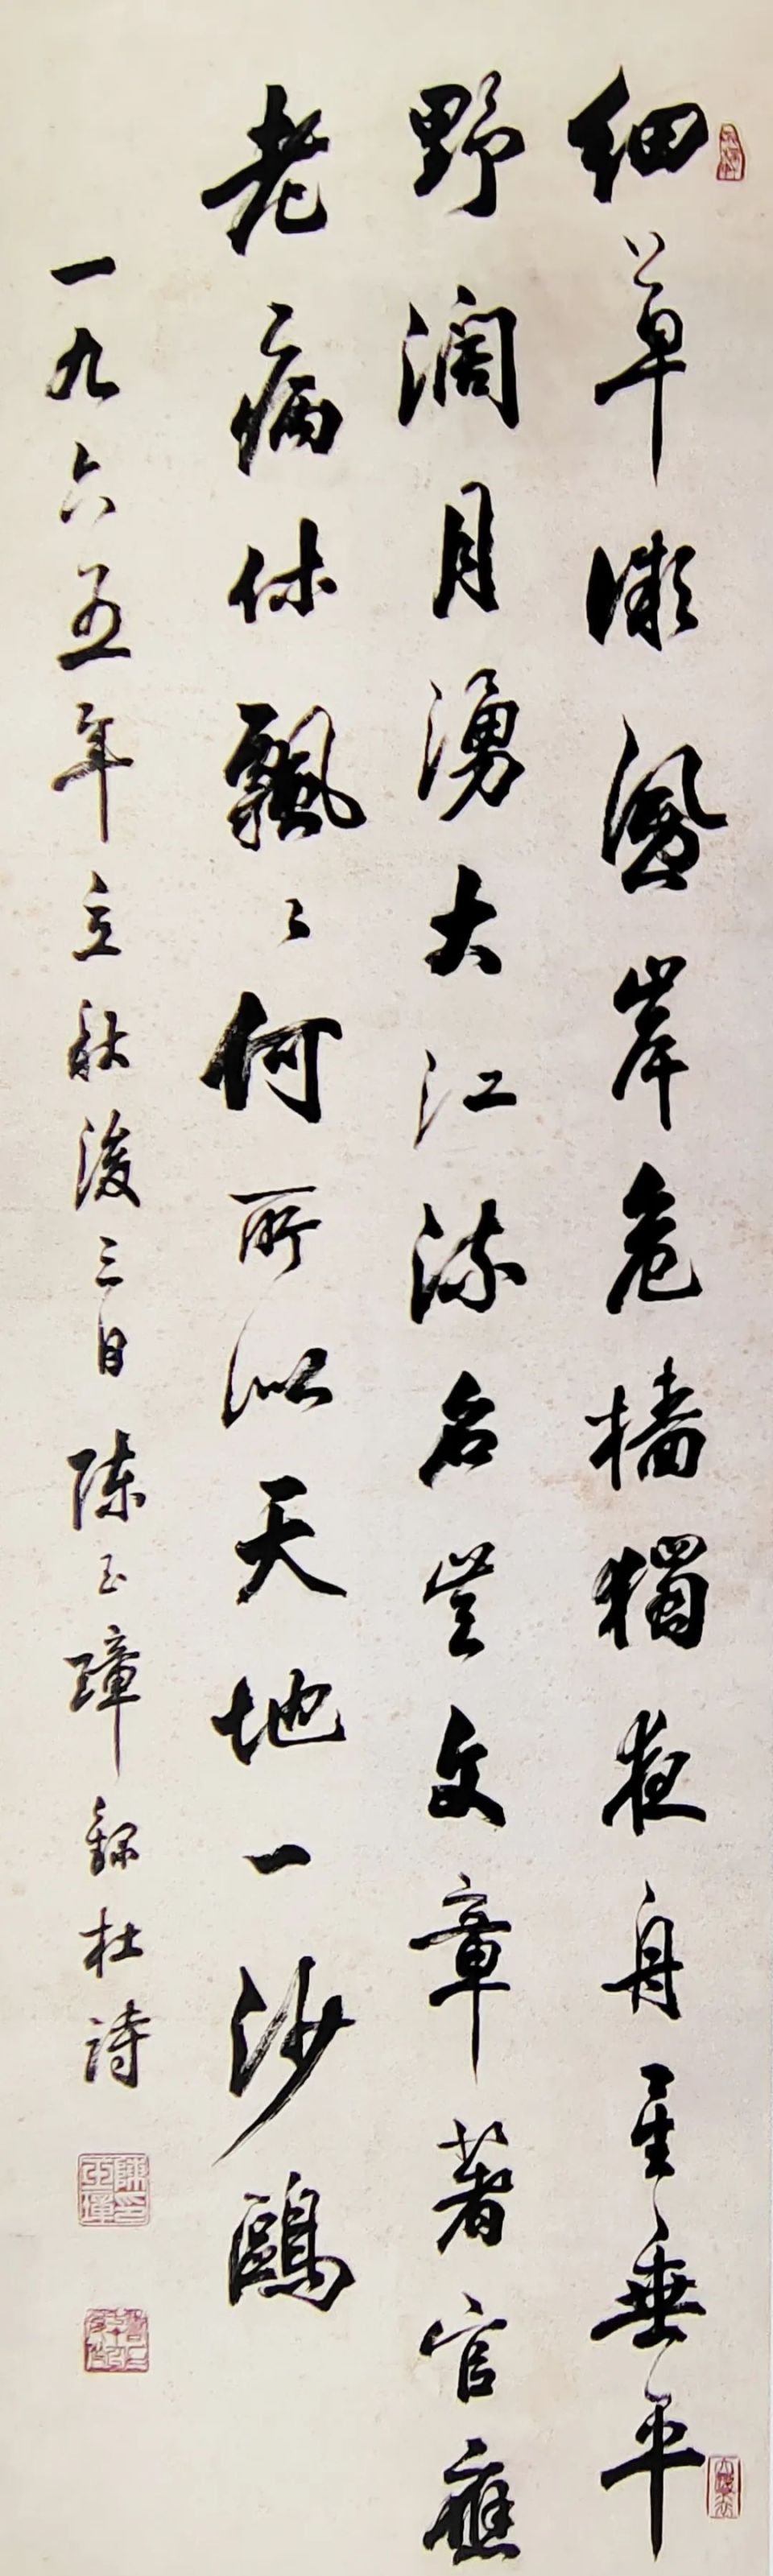 細草微風岸危檣獨夜舟星垂平
野闊月湧大江流名豈文章著官應
老病休飄〻何所似天地一沙鷗
一九六五年立秋後三日陳玉璋錄杜詩